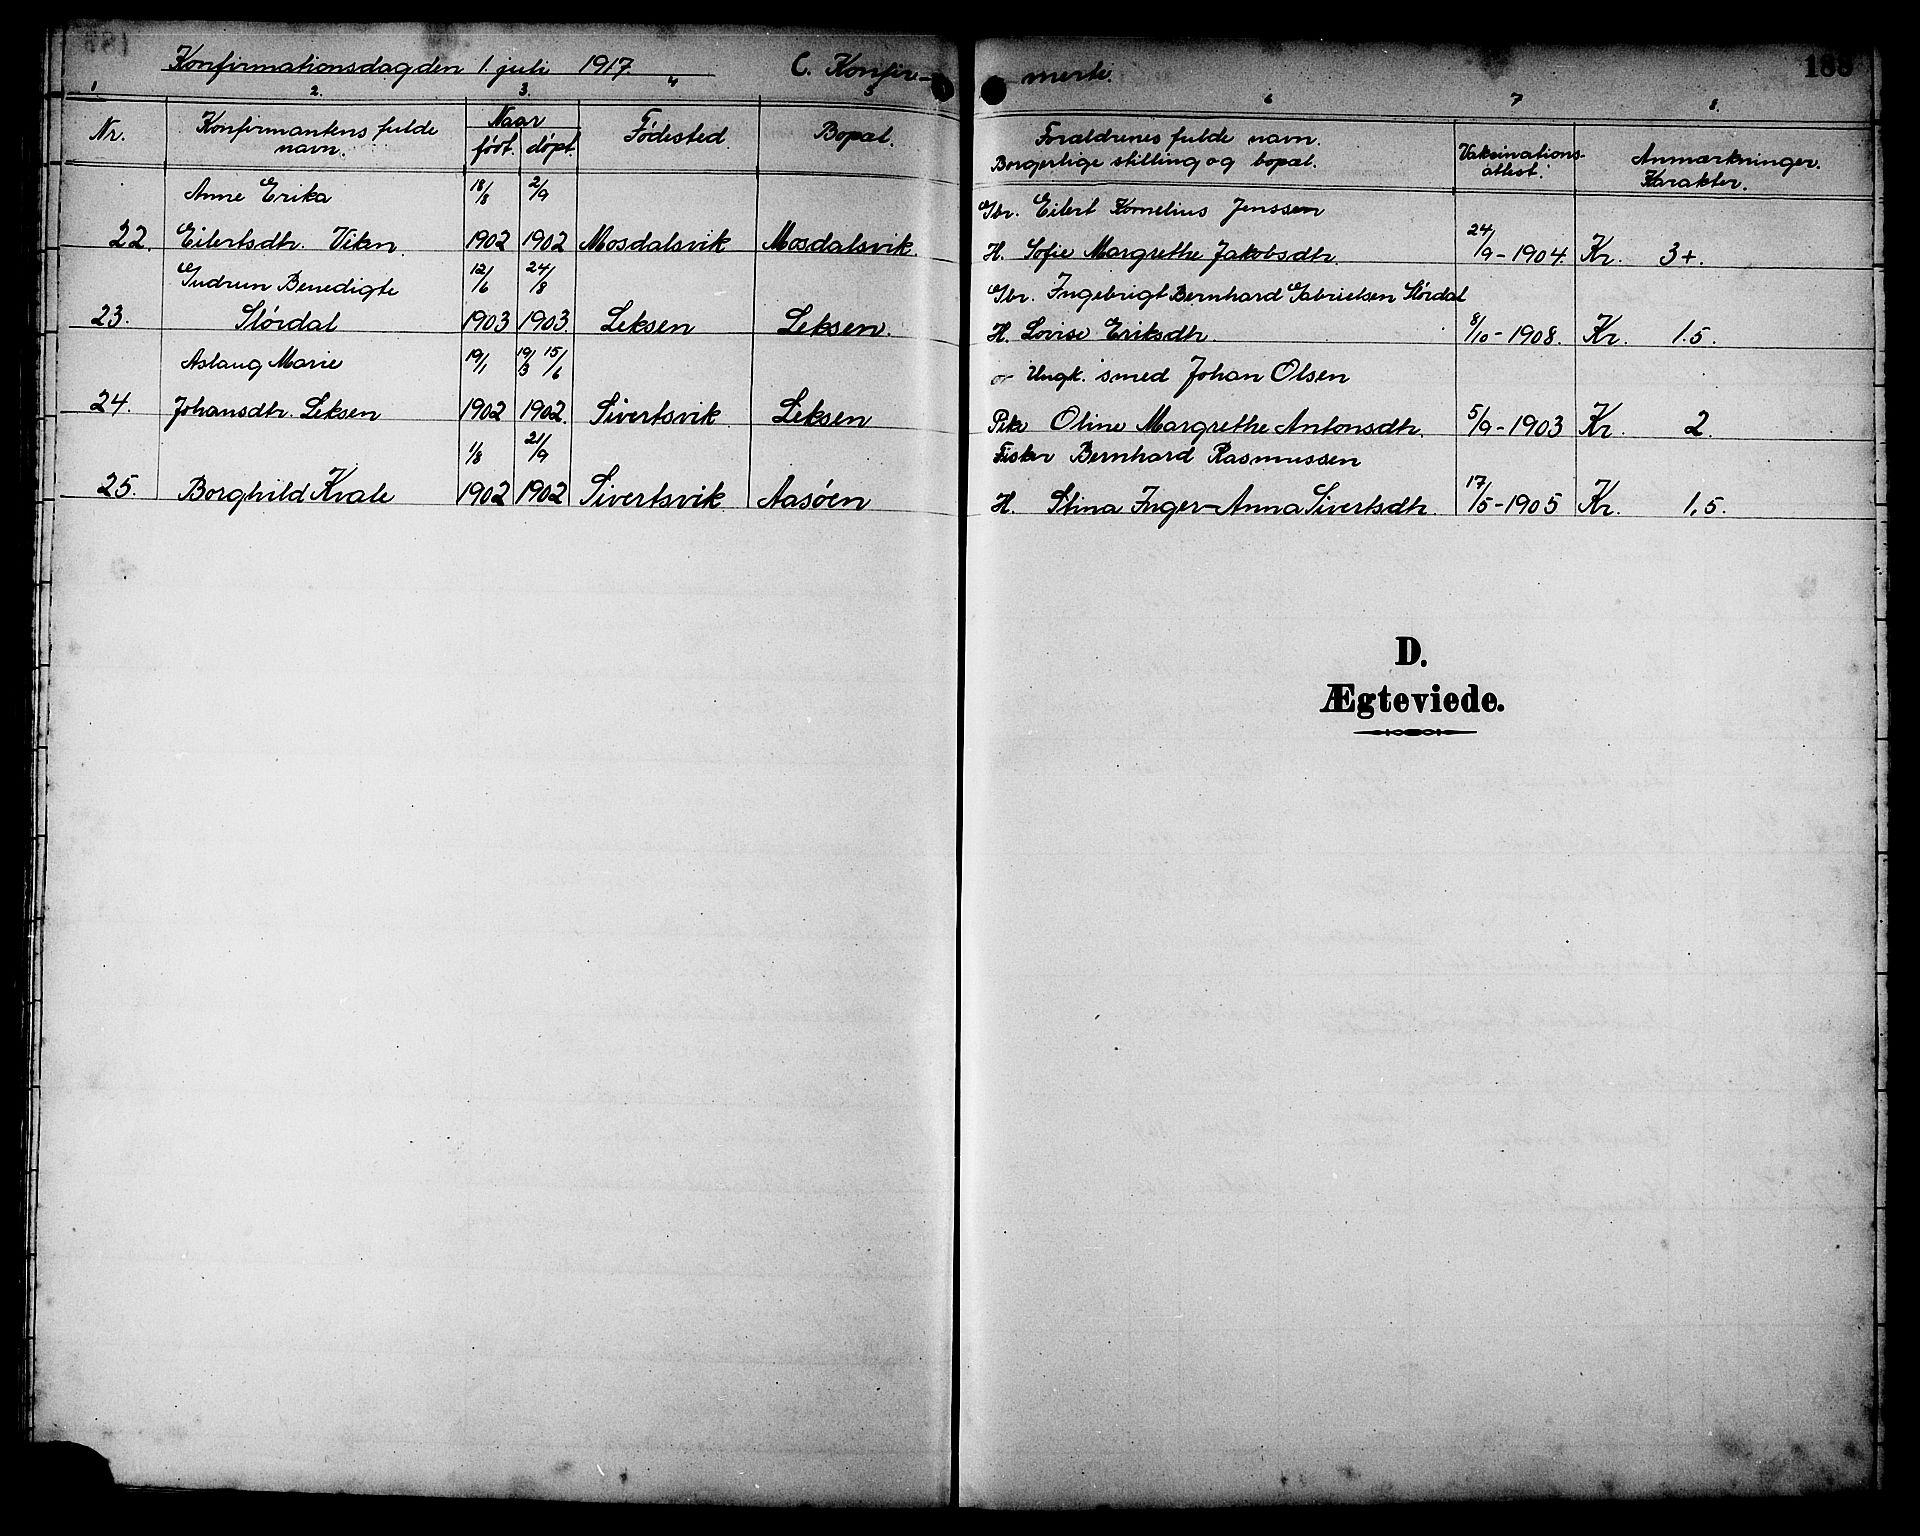 Konfirmationsdag den 1. juli 1917. C. Konfir-
merte. 188
1 2. 3. 4 5 6 7 8.
Nr. Konfirmantens fulde navn. Naar født. døpt. Fødested Bopæl. Forældrenes fulde navn. Borgerlige stilling og bopæl. Vaksinations-attest. Anmærkninger. Karakter.
Anne Erika 18/8 2/9 Gbr. Eilert Kornelius Jenssen
22. Eilertsdtr. Vikan 1902 1902 Mosdalsvik Mosdalsvik. H. Sofie Margrethe Jakobsdtr. 24/9-1904. Kr. 3+.
Gudrun Benedigte 12/6 24/8 Gbr. Ingebrigt Bernhard Gabrielsen Størdal
23. Størdal 1903 1903. Leksen Leksen. H. Lovise Eriksdtr. 8/10-1908. Kr. 1.5.
Aslaug Marie 19/1 19/3 15/6 Ungk. smed Johan Olsen
24. Johansdtr. Leksen 1902 1902. Sivertsvik Leksen Pike Oline Margrethe Antonsdtr. 5/9-1903 Kr. 2.
1/8 21/9 Fisker Bernhard Rasmussen
25. Borghild Kvale 1902 1902 Sivertsvik Aasøen H. Stina Inger-Anna Sivertsdtr. 17/5-1905 Kr. 1,5.
D.
Ægteviede.